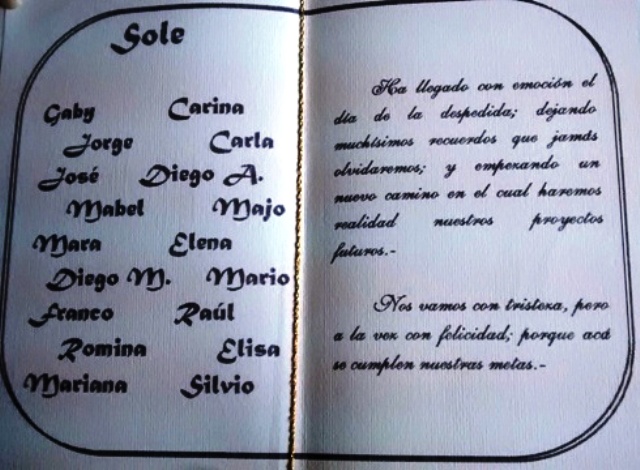 Sole
Gaby Carina
Jorge Carla
José Diego A.
Mabel Majo
Mara Elena
Diego M. Mario
Franco Raúl
Romina Elisa
Mariana Silvio
Ha llegado con emoción el
día de la despedida; dejando
muchísimos recuerdos que jamás
olvidaremos; y empezando un
nuevo camino en el cual haremos
realidad nuestros proyectos
futuros.-
Nos vamos con tristeza, pero
a la vez con felicidad; porque acá
se cumplen nuestras metas.-